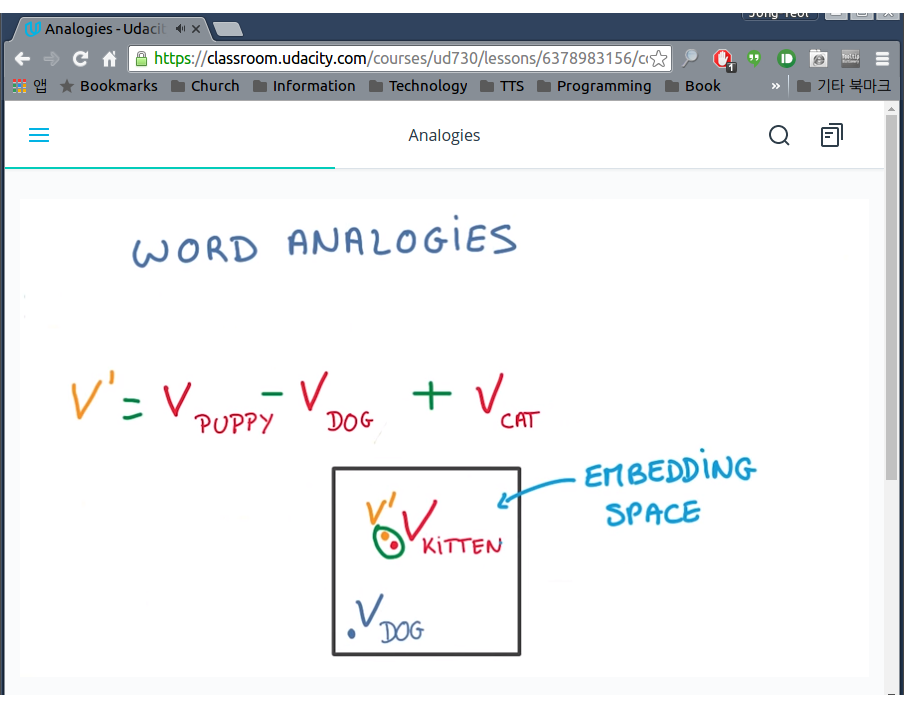 Jong Yeol
Analogies - Udacit
https://classroom.udacity.com/courses/ud730/lessons/6378983156/c
앱 Bookmarks Church Information Technology TTS Programming Book » 기타 북마크
Analogies
WORD ANALOGIES
V' = V PUPPY - V DOG + V CAT
EMBEDDING
SPACE
V' V KITTEN
.V DOG